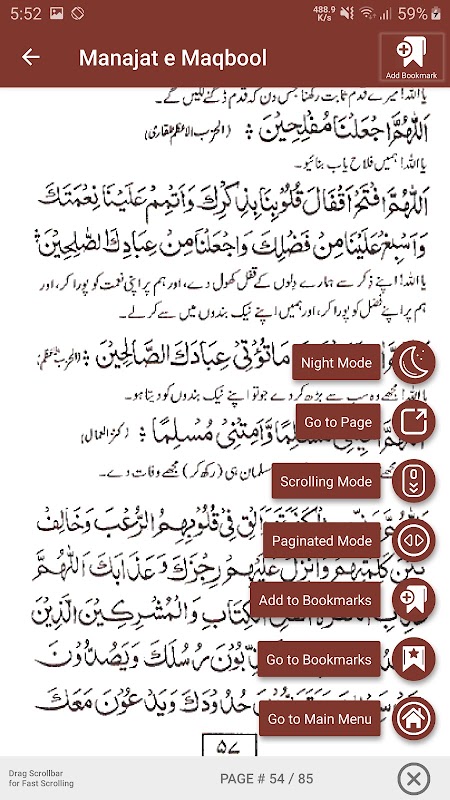 5:52
488.9 K/s
59%
Manajat e Maqbool
Add Bookmark
یا اللہ! میرے قدم ثابت رکھنا جس دن کہ قدم ڈگنے لگیں گے۔
اَللّٰهُمَّ اجْعَلْنَا مُفْلِحِيْنَ (الحزب الاعظم للقاری)
یا اللہ! ہمیں فلاح یاب بنائیو۔
اَللّٰهُمَّ افْتَحْ اَقْفَالَ قُلُوْبِنَا بِذِكْرِكَ وَاَتْمِمْ عَلَيْنَا نِعْمَتَكَ
وَاَسْبِغْ عَلَيْنَا مِنْ فَضْلِكَ وَاجْعَلْنَا مِنْ عِبَادِكَ الصّٰلِحِيْنَ
یا اللہ! اپنے ذکر سے ہمارے دلوں کے قفل کھول دے، اور ہم پر اپنی نعمت کو پورا کر، اور
ہم پر اپنے فضل کو پورا کر، اور ہمیں اپنے نیک بندوں میں سے کر لے۔
مَا تُؤْتِيْ عِبَادَكَ الصَّالِحِيْنَ (الحزب الاعظم)
Night Mode
یا اللہ! مجھے وہ سب سے بڑھ کر دے جو تو اپنے نیک بندوں کو دیتا ہو۔
Go to Page
مُسْلِمًا وَّاَمِتْنِيْ مُسْلِمًا (کنز العمال)
مسلمان ہی (رکھ کر) مجھے وفات دے۔
Scrolling Mode
اَلْقِ فِيْ قُلُوْبِهِمُ الرُّعْبَ وَخَالِفْ
Paginated Mode
بَيْنَ كَلِمَتِهِمْ وَاَنْزِلْ عَلَيْهِمْ رِجْزَكَ وَعَذَابَكَ اَللّٰهُمَّ
Add to Bookmarks
الْكِتَابِ وَالْمُشْرِكِيْنَ الَّذِيْنَ
رُسُلَكَ وَيَصُدُّوْنَ
Go to Bookmarks
حُدُوْدَكَ وَيَدْعُوْنَ مَعَكَ
Go to Main Menu
۵۷
Drag Scrollbar
for Fast Scrolling
PAGE # 54 / 85